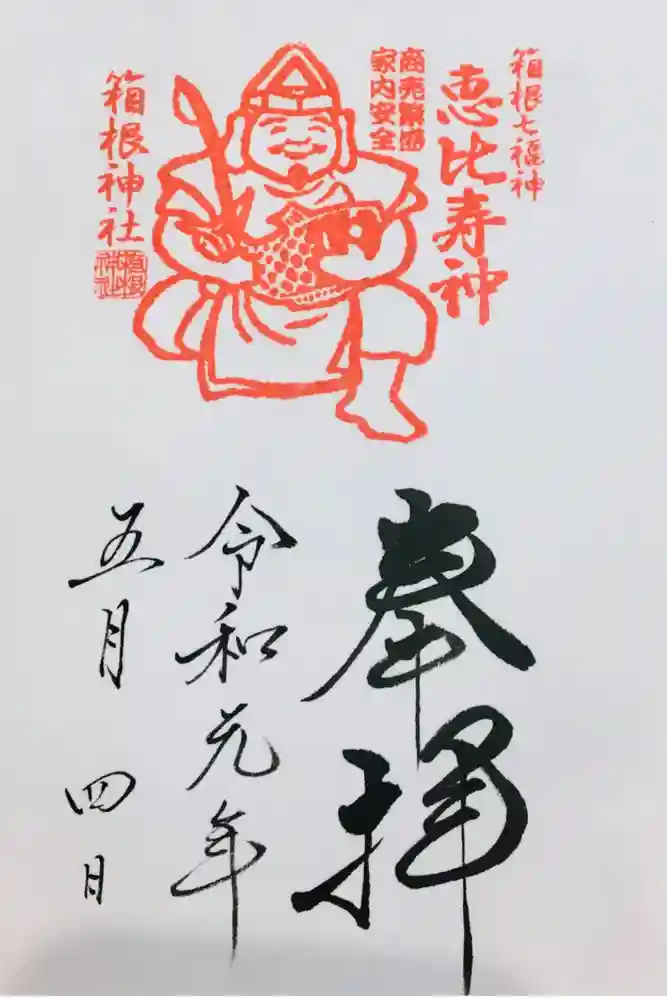 箱根七福神
恵比寿神
商売繁盛
家内安全
箱根神社
箱根
神社
奉拝
令和元年
五月 四日